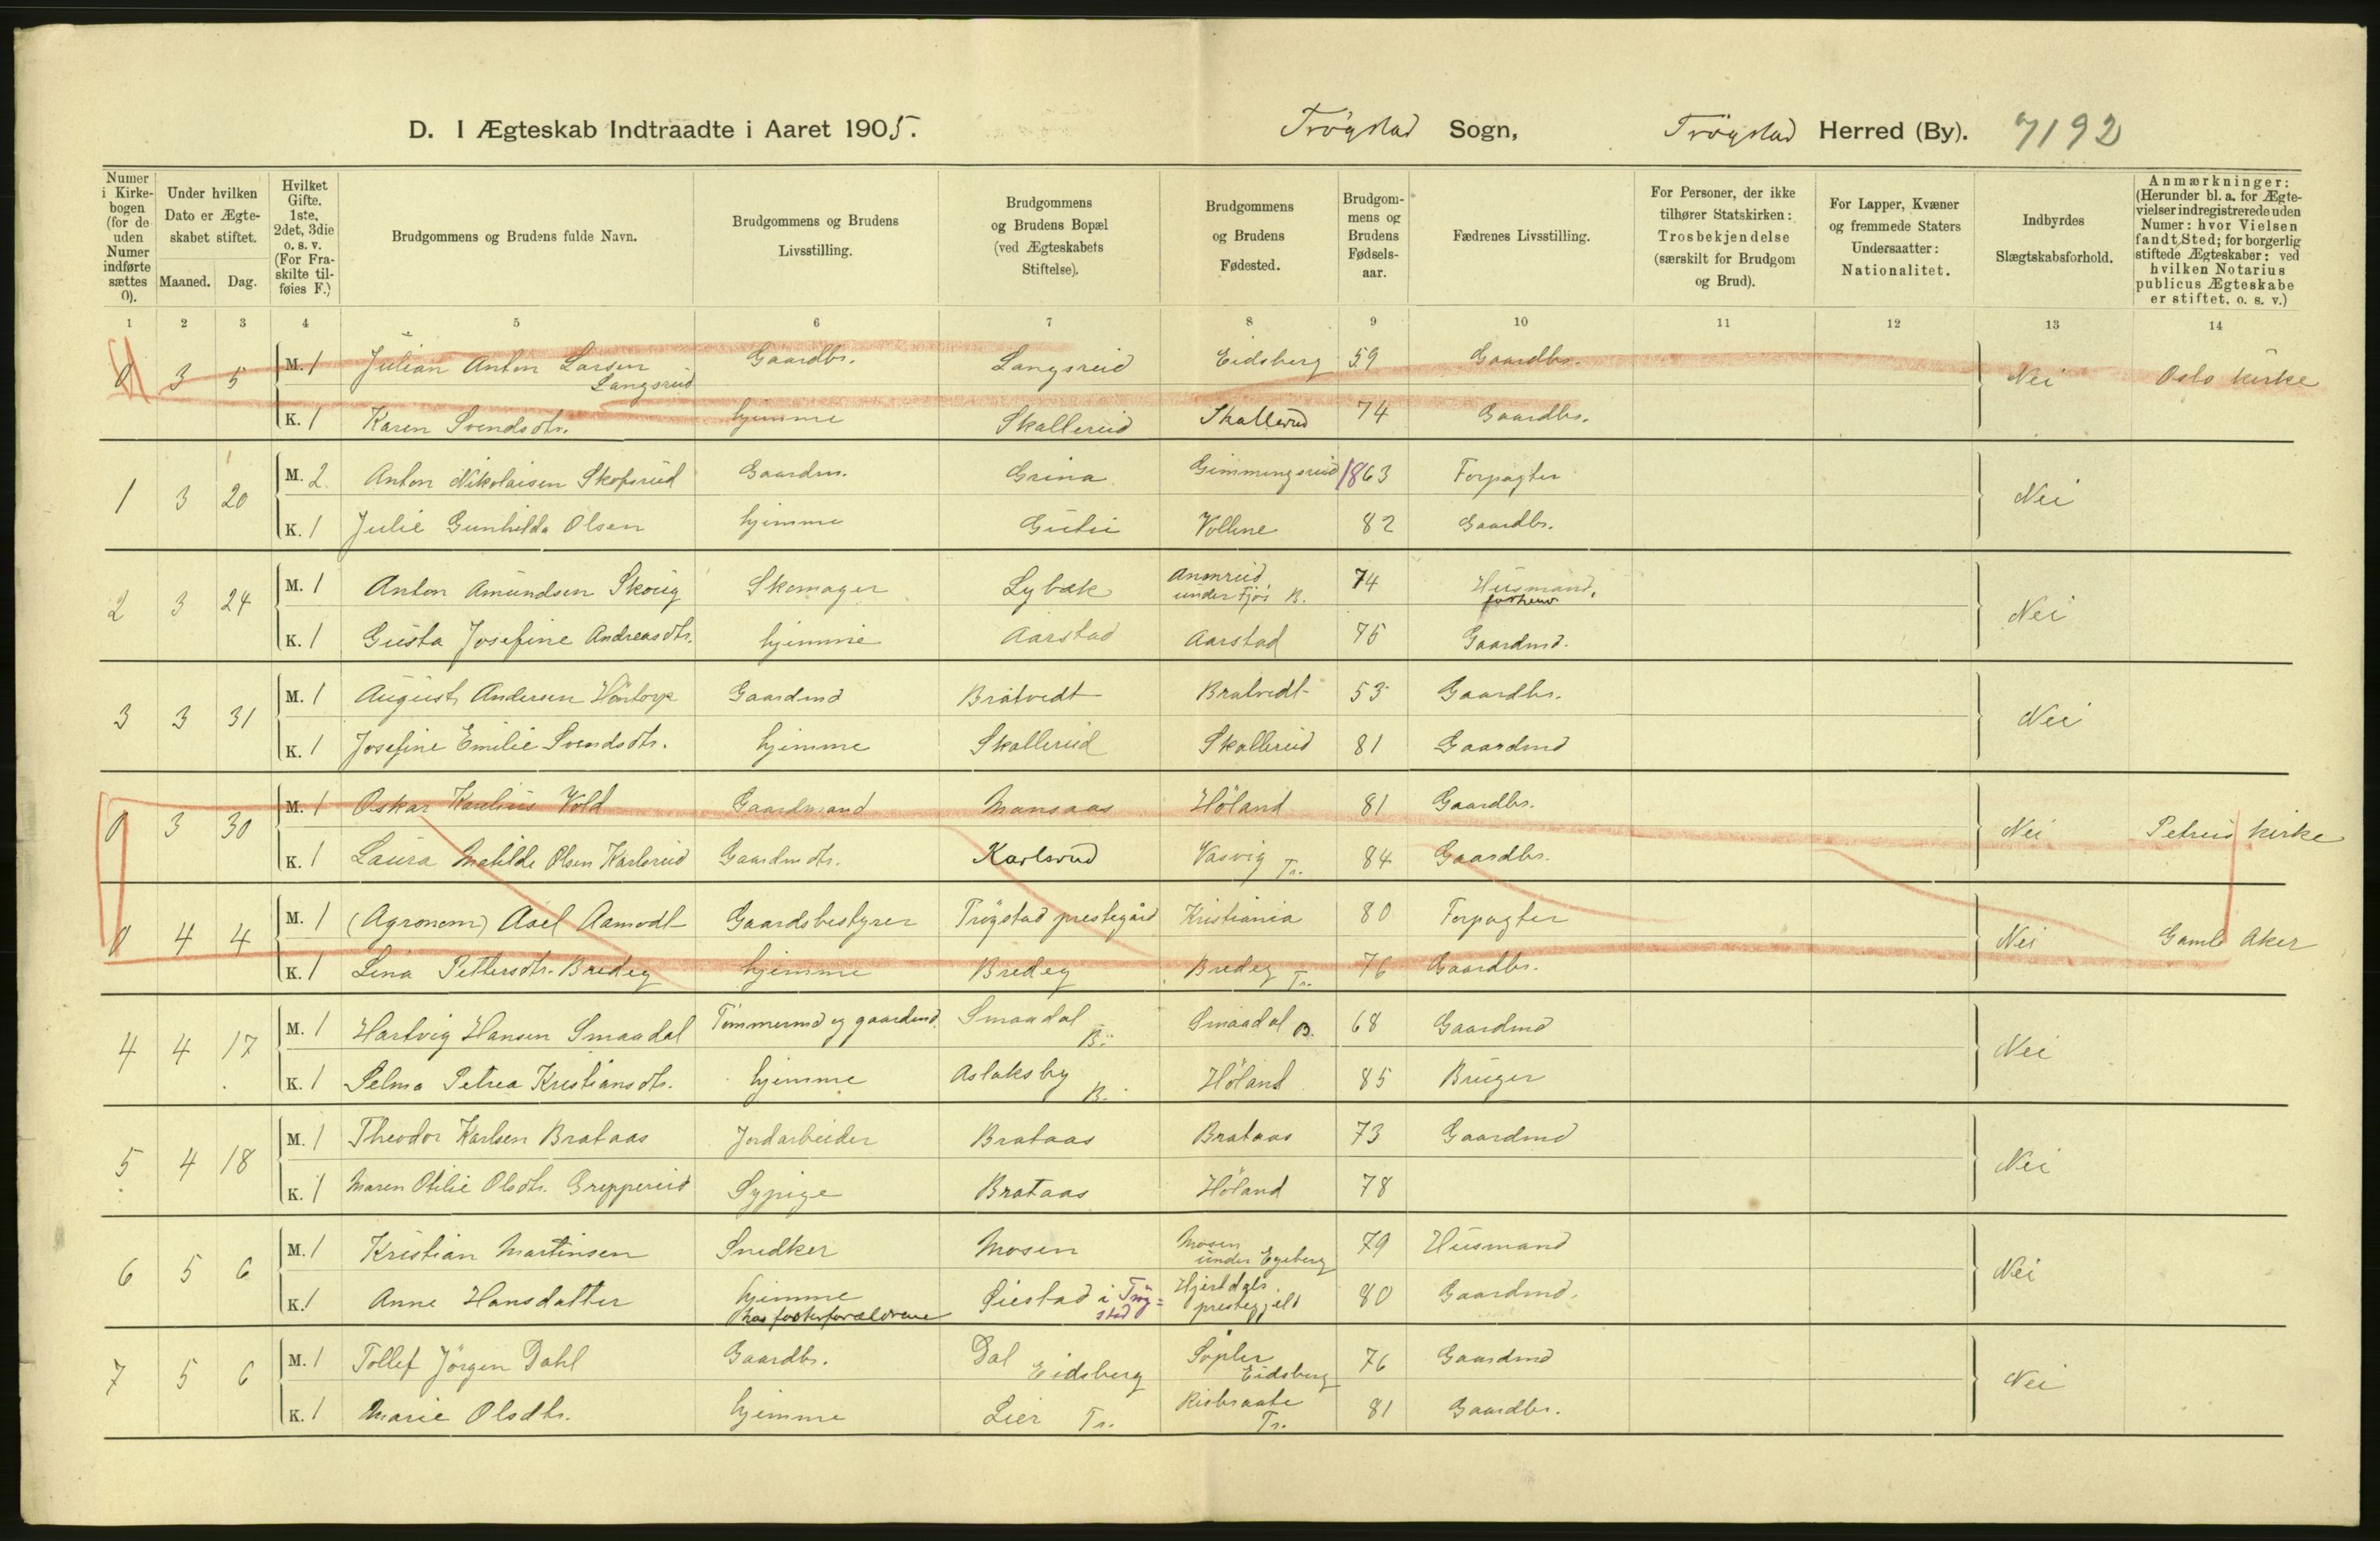 D. I Ægteskab Indtraadte i Aaret 1905. Trøgstad Sogn, Trøgstad Herred (By). 7192
Numer i Kirkebogen (for de uden Numer indførte sættes 0).
Under hvilken Dato er Ægteskabet stiftet.
Maaned. Dag.
Hvilket Gifte. 1ste, 2det, 3die o. s. v. (For Fraskilte tilføies F.)
Brudgommens og Brudens fulde Navn.
Brudgommens og Brudens Livsstilling.
Brudgommens og Brudens Bopæl (ved Ægteskabets Stiftelse).
Brudgommens og Brudens Fødested.
Brudgommens og Brudens Fødselsaar.
Fædrenes Livsstilling.
For Personer, der ikke tilhører Statskirken: Trosbekjendelse (særskilt for Brudgom og Brud).
For Lapper, Kvæner og fremmede Staters Undersaatter: Nationalitet.
Indbyrdes Slægtskabsforhold.
Anmærkninger: (Herunder bl. a. for Ægtevielser indregistrerede uden Numer: hvor Vielsen fandt Sted; for borgerlig stiftede Ægteskaber: ved hvilken Notarius publicus Ægteskabe er stiftet, o. s. v.)
1 2 3 4 5 6 7 8 9 10 11 12 13 14
0 3 5 M. 1 Julian Anton Larsen Langsrud Gaardbr. Langsrud Eidsberg 59 Gaardbr. Nei Oslo kirke
K. 1 Karen Svendsdtr. hjemme Skallerud Skallerud 74 Gaardbr.
1 3 20 M. 2 Anton Nikolaisen Skofsrud Gaardm. Grina Gimmingsrud 1863 Forpagter Nei
K. 1 Julie Gunhilda Olsen hjemme Vollene 82 Gaardbr.
2 3 24 M. 1 Anton Amundsen Skoug Skomager Lybæk under B. 74 Husmand, forhenv Nei
K. 1 Gusta Josefine Andreasdtr. hjemme Aarstad Aarstad 75 Gaardmd.
3 3 31 M. 1 August Andersen Gaardmd Bratvedt Bratvedt 53 Gaardbr. Nei
K. 1 Josefine Emilie Svendsdtr. hjemme Skallerud Skallerud 81 Gaardmd
0 3 30 M. 1 Oskar Karelius Vold Gaardmand Mansaas Høland 81 Gaardbr. Nei Petrus kirke
K. 1 Laura Matilde Olsen Karlsrud Gaardmdtr. Karlsrud Vasvig Tr. 84 Gaardbr.
0 4 4 M. 1 (Agronom) Axel Aamodt Gaardsbestyrer Trøgstad prestegård Kristiania 80 Forpagter Nei Gamle Aker
K. 1 Lina Pettersdtr. Bredeg hjemme Bredeg Bredeg Tr. 76 Gaardbr.
4 4 17 M. 1 Hartvig Hansen Smaadal Tømmermd og gaardmd. Smaadal B. Smaadal B. 68 Gaardmd Nei
K. 1 Selma Petrea Kristiansdtr. hjemme Aslaksby B. Høland 85 Bruger
5 4 18 M. 1 Theodor Karlsen Brataas Jordarbeider Brataas Brataas 73 Gaardmd Nei
K. 1 Maren Otilie Olsdtr. Grepperud Sypige Brataas Høland 78
6 5 6 M. 1 Kristian Martinsen Snedker Mosen Mosen under Egeberg 79 Husmand Nei
K. 1 Anne Hansdatter hjemme hos fosterforældrene i Trøgstad Hjertdals prestegjeld 80 Gaardmd.
7 5 6 M. 1 Tollef Jørgen Dahl Gaardbr. Dal Eidsberg Søpler Eidsberg 76 Gaardmd Nei
K. 1 Marie Olsdtr. hjemme Lier Tr. Risbraate Tr. 81 Gaardbr.